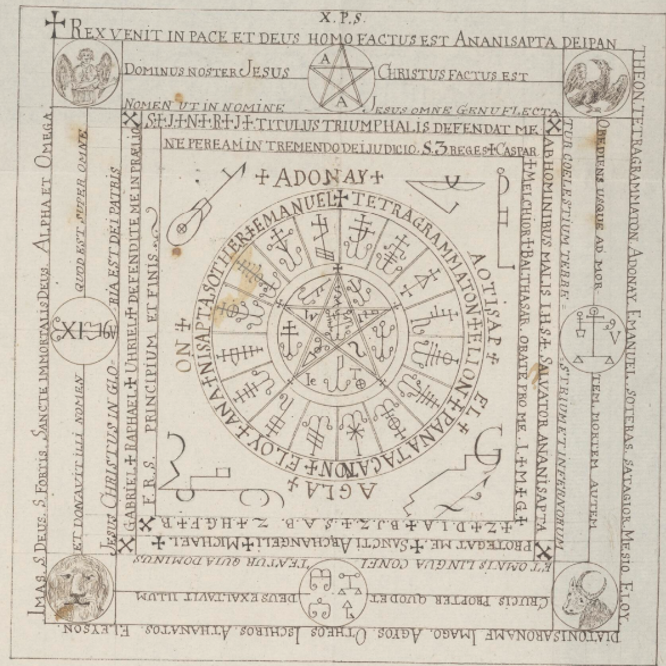 X.P.S.
✝ REX VENIT IN PACE ET DEUS HOMO FACTUS EST ANANISAPTA DEI PAN
THEON. TETRAGRAMMATON. ADONAY. EMANUEL. SOTERAS. SATAGIOR. MESIO. ELOY.
DIATONISARONAME IMAGO. AGYOS. OTHEOS. ISCHIROS. ATHANATOS. ELEYSON.
IMAS. S. DEUS. S. FORTIS. SANCTE IMMORTALIS DEUS. ALPHA ET OMEGA
DOMINUS NOSTER JESUS
CHRISTUS FACTUS EST
OBEDIENS USQUE AD MOR
TEM, MORTEM AUTEM
CRUCIS PROPTER QUOD ET
DEUS EXALTAVIT ILLUM
ET DONAVIT ILLI NOMEN
QUOD EST SUPER OMNE
NOMEN UT IN NOMINE
JESUS OMNE GENU FLECTA
TUR COELESTIUM TERRE
STRIUM ET INFERNORUM
ET OMNIS LINGUA CONFI
TEATUR QUIA DOMINUS
JESUS CHRISTUS IN GLO
RIA EST DEI PATRIS
S ✝ J ✝ N ✝ R ✝ J ✝ TITULUS TRIUMPHALIS DEFENDAT ME
AB HOMINIBUS MALIS I.H.S ✝ SALVATOR ANANISAPTA
PROTEGAT ME. ✝ SANCTI ARCHANGELI ✝ MICHAEL ✝
GABRIEL ✝ RAPHAEL ✝ UHRIEL ✝ DEFENDITE ME IN PRÆLIO
NE PEREAM IN TREMENDO DEI JUDICIO. S. 3 REGES ✝ CASPAR
✝ MELCHIOR ✝ BALTHASAR ORATE PRO ME. I ✝ M ✝ G ✝
✝ Z ✝ D.I.A ✝ B.J.Z ✝ S.A.B. Z ✝ H.G.F ✝ B.
F.R.S. PRINCIPIUM ET FINIS
✝ ADONAY ✝
AOTISAP ✝
EL ✝
AGLA ✝
ON ✝
EMANUEL ✝ TETRAGRAMMATON ✝ ELION ✝ PANATACATON ✝ ELOY ✝ ANA ✝ NISAPTA SOTHER ✝
A
A